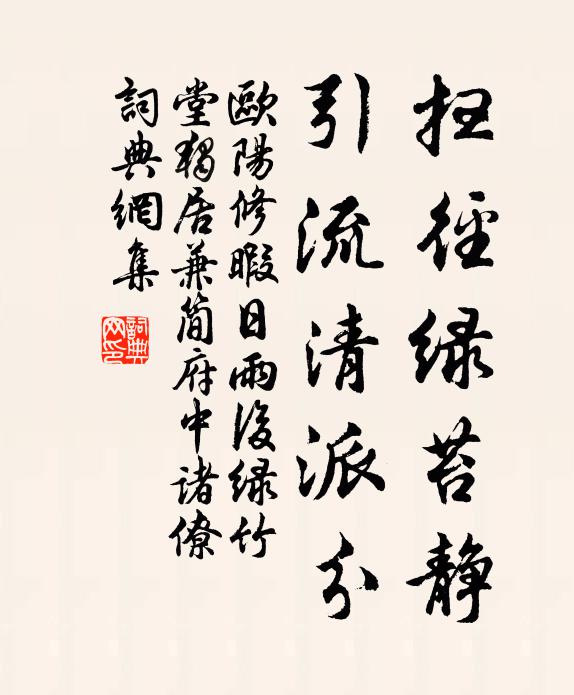 扫径绿苔静
引流清派分
歐陽修暇日雨後绿竹
堂獨居兼简府中诸僚
詞典網集
詞典
网印